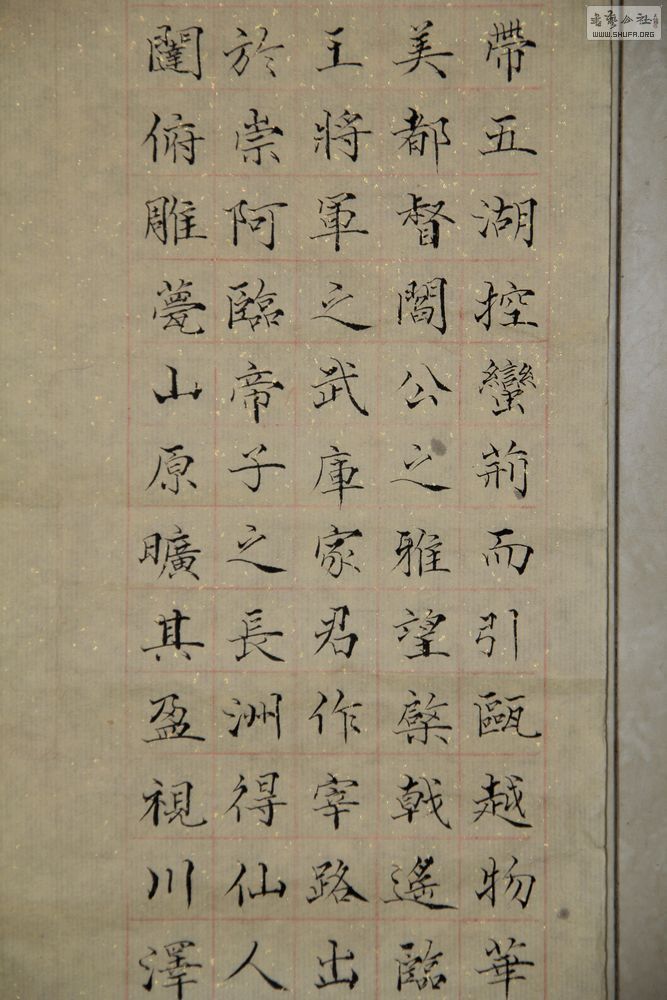 帶五湖控蠻荊而引甌越物華
美都督閻公之雅望棨戟遙臨
王將軍之武庫家君作宰路出
於崇阿臨帝子之長洲得仙人
闥俯雕甍山原曠其盈視川澤
书艺公社
WWW.SHUFA.ORG